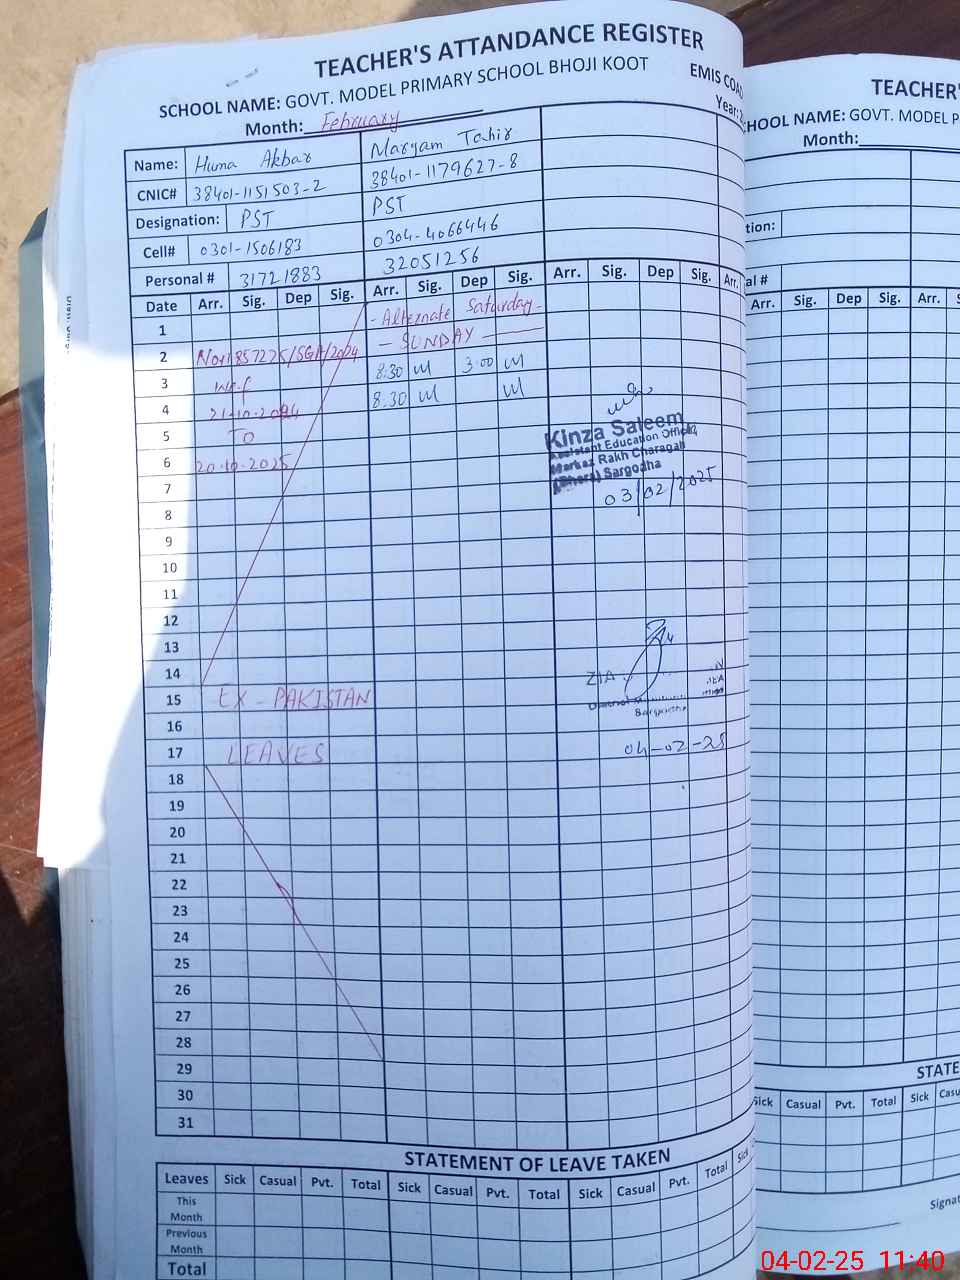 TEACHER'S ATTANDANCE REGISTER
SCHOOL NAME: GOVT. MODEL PRIMARY SCHOOL BHOJI KOOT EMIS COAD
Month: February Year:
Name: Huma Akbar Maryam Tahir
CNIC# 38401-1151503-2 38401-1179627-8
Designation: PST PST
Cell# 0301-1506183 0304-4066446
Personal # 31721883 32051256
Date Arr. Sig. Dep Sig. Arr. Sig. Dep Sig. Arr. Sig. Dep Sig. Arr.
1 - Alternate Saturday -
2 - SUNDAY -
3 8:30 3:00
4 8:30
5 TO
6 20.10.2025
7
8
9
10
11
12
13
14
15 EX - PAKISTAN
16
17 LEAVES
18
19
20
21
22
23
24
25
26
27
28
29
30
31
Kinza Saleem
Assistant Education Officer
Markaz Rakh Charagah
(Bhera) Sargodha
03/02/2025
ZIA
Sargodha
04-02-25
STATEMENT OF LEAVE TAKEN
Leaves Sick Casual Pvt. Total Sick Casual Pvt. Total Sick Casual Pvt. Total Sick
This Month
Previous Month
Total
TEACHER'
SCHOOL NAME: GOVT. MODEL P
Month:
tion:
al #
Arr. Sig. Dep Sig. Arr.
STATE
Sick Casual Pvt. Total Sick
Signat
04-02-25 11:40